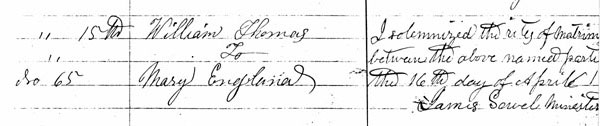 " 15th William Thomas
" To
No. 65 Mary England
I solemnized the rites of matrim
between the above named parti
the 16th day of April 1
James Sowel Minister